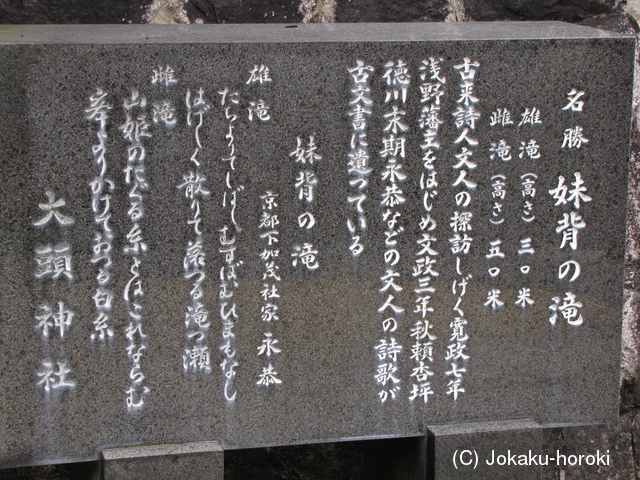 名勝 妹背の滝
雄滝(高さ)三〇米
雌滝(高さ)五〇米
古来詩人文人の探訪しげく寛政七年
浅野藩主をはじめ文政三年秋頼杏坪
徳川末期永恭などの文人の詩歌が
古文書に遺っている
妹背の滝
京都下加茂社家 永恭
雄滝
たちよりてしばしむすばむひまもなし
はげしく散りて落つる滝つ瀬
雌滝
山姫のたぐる糸とはこれならむ
よりかけておつる白糸
大頭神社
(C) Jokaku-horoki